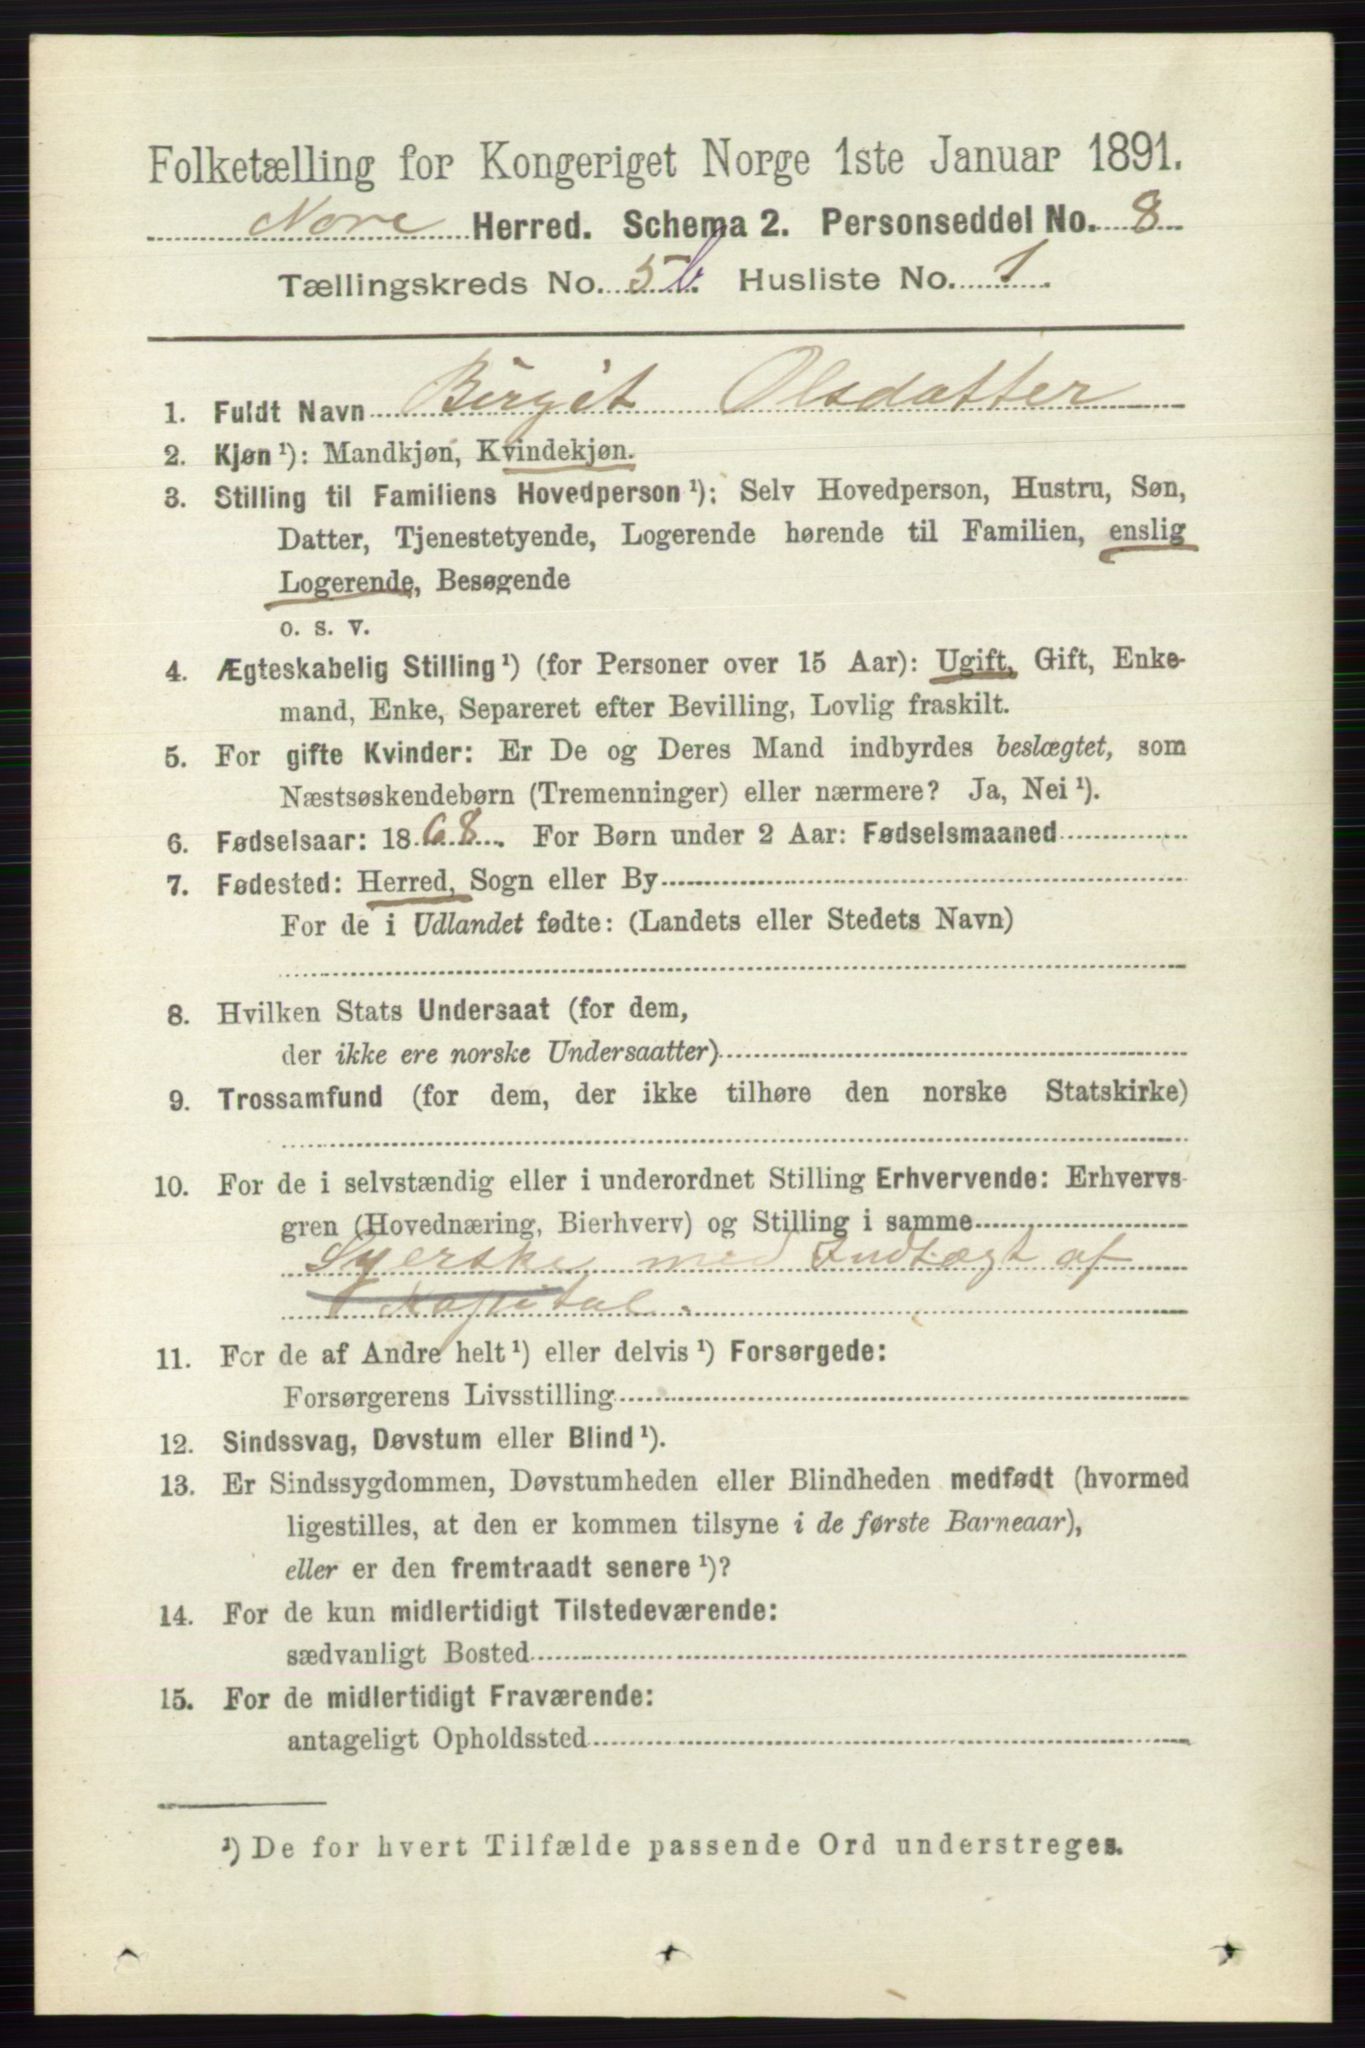 Folketælling for Kongeriget Norge 1ste Januar 1891.
Nore Herred. Schema 2. Personseddel No. 8
Tællingskreds No. 5 b. Husliste No. 1.
1. Fuldt Navn Birgit Olsdatter
2. Kjøn ¹): Mandkjøn, Kvindekjøn.
3. Stilling til Familiens Hovedperson ¹): Selv Hovedperson, Hustru, Søn,
Datter, Tjenestetyende, Logerende hørende til Familien, enslig
Logerende, Besøgende
o. s. v.
4. Ægteskabelig Stilling ¹) (for Personer over 15 Aar): Ugift, Gift, Enke-
mand, Enke, Separeret efter Bevilling, Lovlig fraskilt.
5. For gifte Kvinder: Er De og Deres Mand indbyrdes beslægtet, som
Næstsøskendebørn (Tremenninger) eller nærmere? Ja, Nei ¹).
6. Fødselsaar: 1868. For Børn under 2 Aar: Fødselsmaaned
7. Fødested: Herred, Sogn eller By
For de i Udlandet fødte: (Landets eller Stedets Navn)
8. Hvilken Stats Undersaat (for dem,
der ikke ere norske Undersaatter)
9. Trossamfund (for dem, der ikke tilhøre den norske Statskirke)
10. For de i selvstændig eller i underordnet Stilling Erhvervende: Erhvervs-
gren (Hovednæring, Bierhverv) og Stilling i samme
Syerske med Indtægt af
Kapital.
11. For de af Andre helt ¹) eller delvis ¹) Forsørgede:
Forsørgerens Livsstilling
12. Sindssvag, Døvstum eller Blind ¹).
13. Er Sindssygdommen, Døvstumheden eller Blindheden medfødt (hvormed
ligestilles, at den er kommen tilsyne i de første Barneaar),
eller er den fremtraadt senere ¹)?
14. For de kun midlertidigt Tilstedeværende:
sædvanligt Bosted
15. For de midlertidigt Fraværende:
antageligt Opholdssted
¹) De for hvert Tilfælde passende Ord understreges.